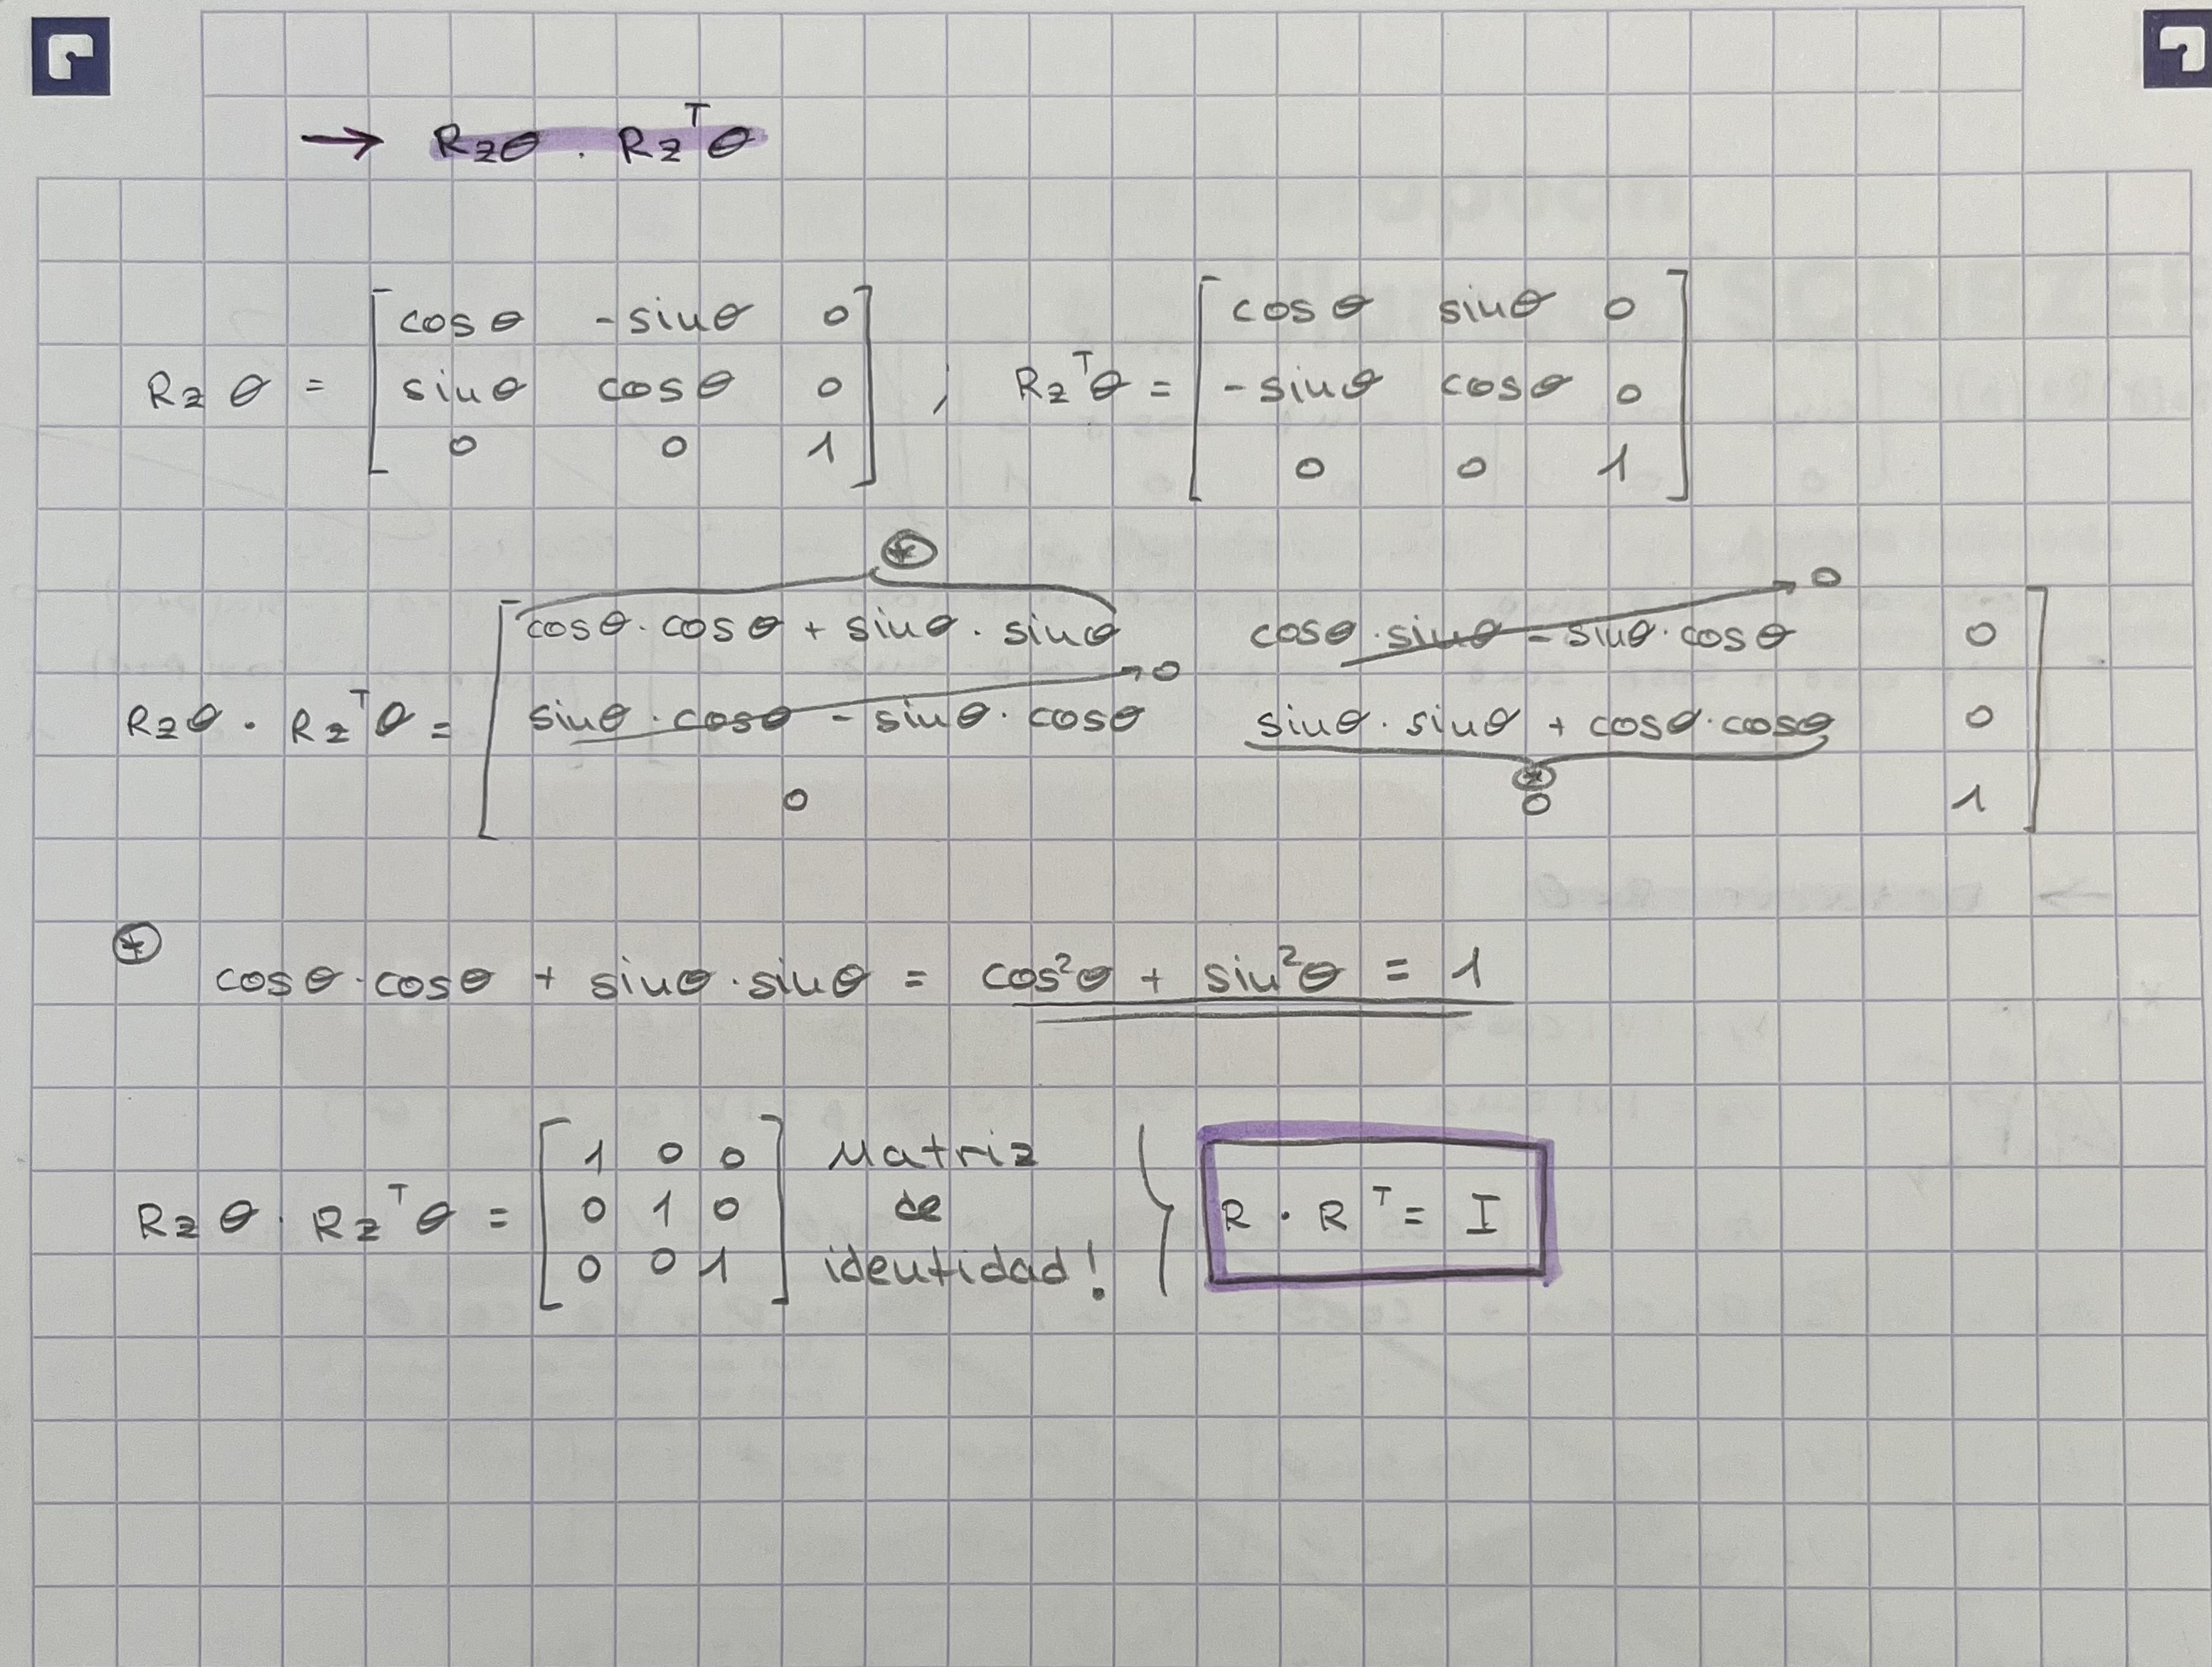 → Rzθ · Rz^Tθ
Rz θ = [ cosθ -sinθ 0 ; Rz^Tθ = [ cosθ sinθ 0
sinθ cosθ 0
0 0 1 ]
-sinθ cosθ 0
0 0 1 ]
⊛
Rzθ · Rz^Tθ = [ cosθ·cosθ + sinθ·sinθ cosθ·sinθ - sinθ·cosθ → 0 0
sinθ·cosθ - sinθ·cosθ → 0 sinθ·sinθ + cosθ·cosθ 0
⊛
0 0 1 ]
⊛ cosθ·cosθ + sinθ·sinθ = cos²θ + sin²θ = 1
Rz θ · Rz^Tθ = [ 1 0 0
0 1 0
0 0 1 ]
Matriz
de
identidad!
R · R^T = I